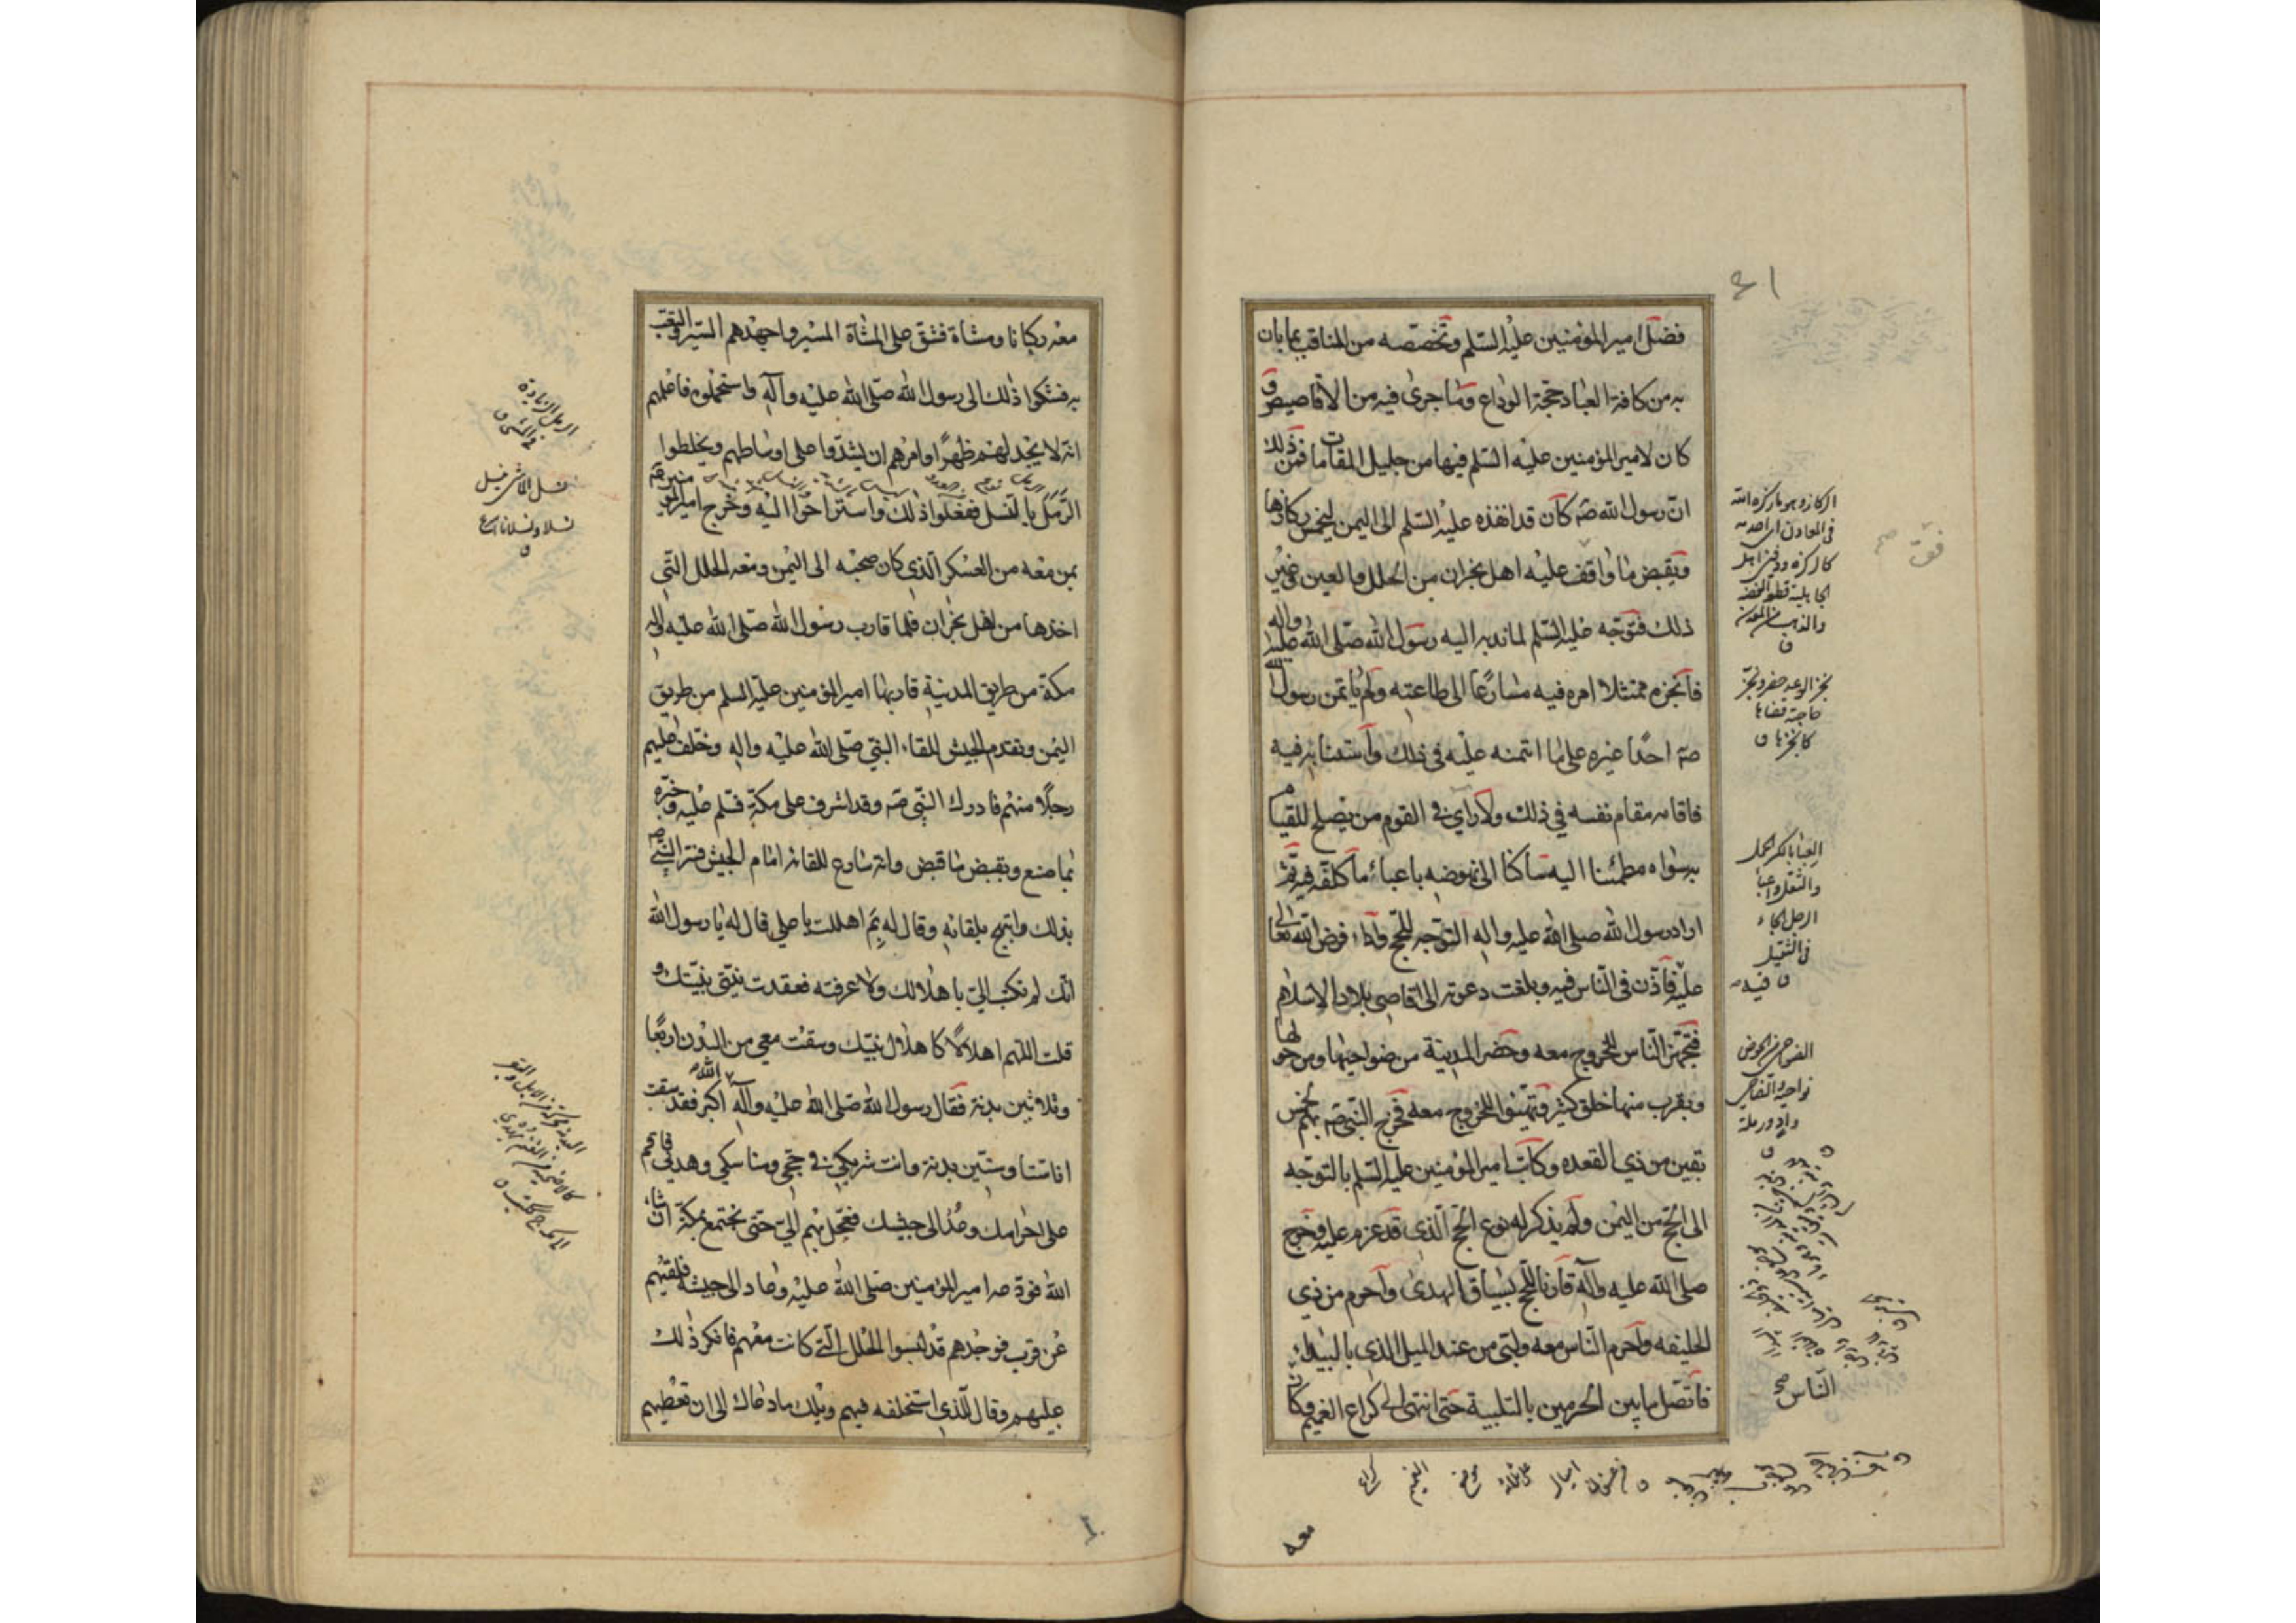 فضل امير المؤمنين عليه السلم وتخصصه من المناقب بما بان
به من كافة العباد حجة الوداع وما جرى فيه من الاقاصيص و
كان لامير المؤمنين عليه السلم فيها من جليل المقامات فمن ذلك
ان رسول الله صه كان قد انفذه عليه السلم الى اليمن ليخمس ركازها
ويقبض ما واقف عليه اهل نجران من الحلل والعين وغير
ذلك فتوجه عليه السلم لما ندبه اليه رسول الله صلى الله عليه واله
فانجزه ممتثلا امره فيه مسارعا الى طاعته ولم ياتمن رسول الله
صه احدا غيره على ما ائتمنه عليه في ذلك
فاقامه مقام نفسه في ذلك ولا راى في القوم من يصلح للقيام
به سواه مطمئنا اليه ساكنا الى نهوضه باعباء ما كلفه فيه ثم
اراد رسول الله صلى الله عليه واله التوجه للحج واداء فرض الله تعالى
عليه فاذن في الناس فيه وبلغت دعوته الى اقاصى بلاد الاسلام
فتجهز الناس للخروج معه وحضر المدينة من ضواحيها ومن حولها
وبقرب منها خلق كثير وتهيئوا للخروج معه فخرج النبي صه بهم لخمس
بقين من ذي القعده وكاتب امير المؤمنين عليه السلم بالتوجه
الى الحج من اليمن ولم يذكر له نوع الحج الذي قد عزم عليه وخرج
صلى الله عليه وآله قارنا للحج بسياق الهدى واحرم من ذي
الحليفه واحرم الناس معه ولبى من عند الميل الذي بالبيداء
فاتصل ما بين الحرمين بالتلبية حتى انتهى الى كراع الغميم وكان
الناس صح
معه
الركاز وهو ما ركزه الله
في المعادن اى احدثه
كالركزة ودفين اهل
الجاهلية وقطع الفضة
والذهب من المعدن
ق
نجز الوعد حضر ونجز
حاجته قضاها
كانجزها ق
العبأ بالكسر الحمل
والثقل
نواحيه
كراع الغميم موضع على ثلاثة اميال من عسفان
معه ركبانا ومشاة فشق على المشاة المسير واجهدهم السير والتعب
به فشكوا ذلك الى رسول الله صلى الله عليه وآله واستحملوه فاعلمهم
انه لا يجد لهم ظهرا وامرهم ان يشدوا على اوساطهم ويخلطوا
الرمل بالنسل ففعلوا ذلك واستراحوا اليه وخرج امير المؤمنين
بمن معه من العسكر الذي كان صحبه الى اليمن ومعه الحلل التي
اخذها من اهل نجران فلما قارب رسول الله صلى الله عليه واله
مكة من طريق المدينة قاربها امير المؤمنين عليه السلم من طريق
اليمن وتقدم الجيش للقاء النبي صلى الله عليه واله وخلف عليهم
رجلا منهم فادرك النبي صه وقد اشرف على مكة فسلم عليه وخبره
بما صنع وبقبض ما قبض وانه سارع للقائه امام الجيش فسر النبي صه
بذلك وابتهج بلقائه وقال له بم اهللت يا علي فقال له يا رسول الله
انك لم تكتب الي باهلالك ولا عرفته فعقدت نيتي بنيتك و
قلت اللهم اهلالا كاهلال نبيك وسقت معي من البدن اربعا
وثلاثين بدنة فقال رسول الله صلى الله عليه وآله الله اكبر فقد سقت
انا ستا وستين بدنة وانت شريكي في حجي ومناسكي وهديي فاقم
على احرامك وعد الى جيشك فعجل بهم الي حتى نجتمع بمكة ان شاء
الله فودعه امير المؤمنين صلى الله عليه وعاد الى جيشه فلقيهم
عن قرب فوجدهم قد لبسوا الحلل التي كانت معهم فانكر ذلك
عليهم وقال للذي استخلفه فيهم ويلك ما دعاك الى ان تعطيهم
نسل الماشى ينسل
نسلا ونسلانا اسرع